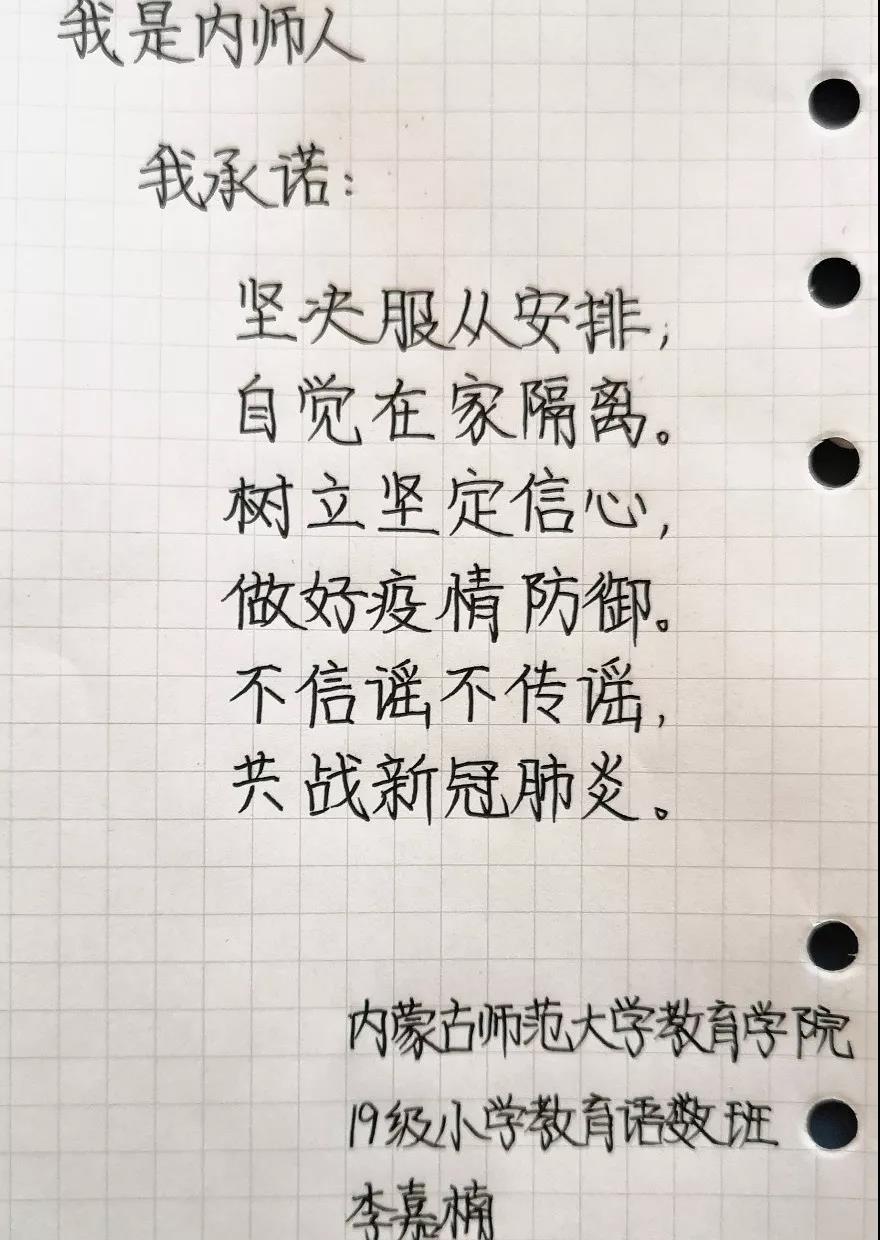 我是内师人
我承诺：
坚决服从安排，
自觉在家隔离。
树立坚定信心，
做好疫情防御。
不信谣不传谣，
共战新冠肺炎。
内蒙古师范大学教育学院
19级小学教育语数班
李嘉楠